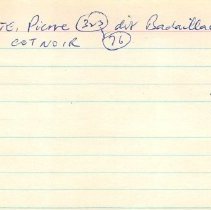 TE, Pierre (323) dit Badaillac
COTNOIR (96)